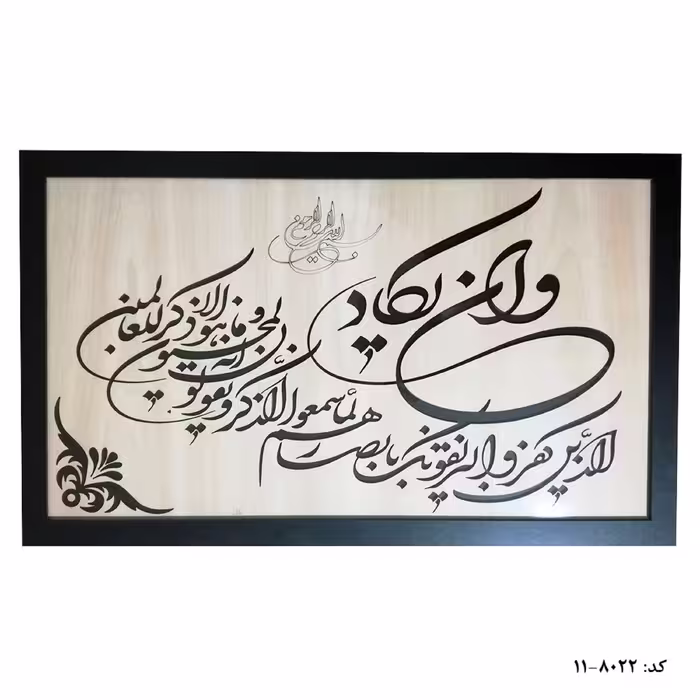 بسم الله الرحمن الرحیم
وان یکاد
الذین کفروا لیزلقونک بابصارهم لما سمعوا الذکر ویقولون
انه لمجنون
وما هو الا ذکر للعالمین
کد: ۸۰۲۲-۱۱